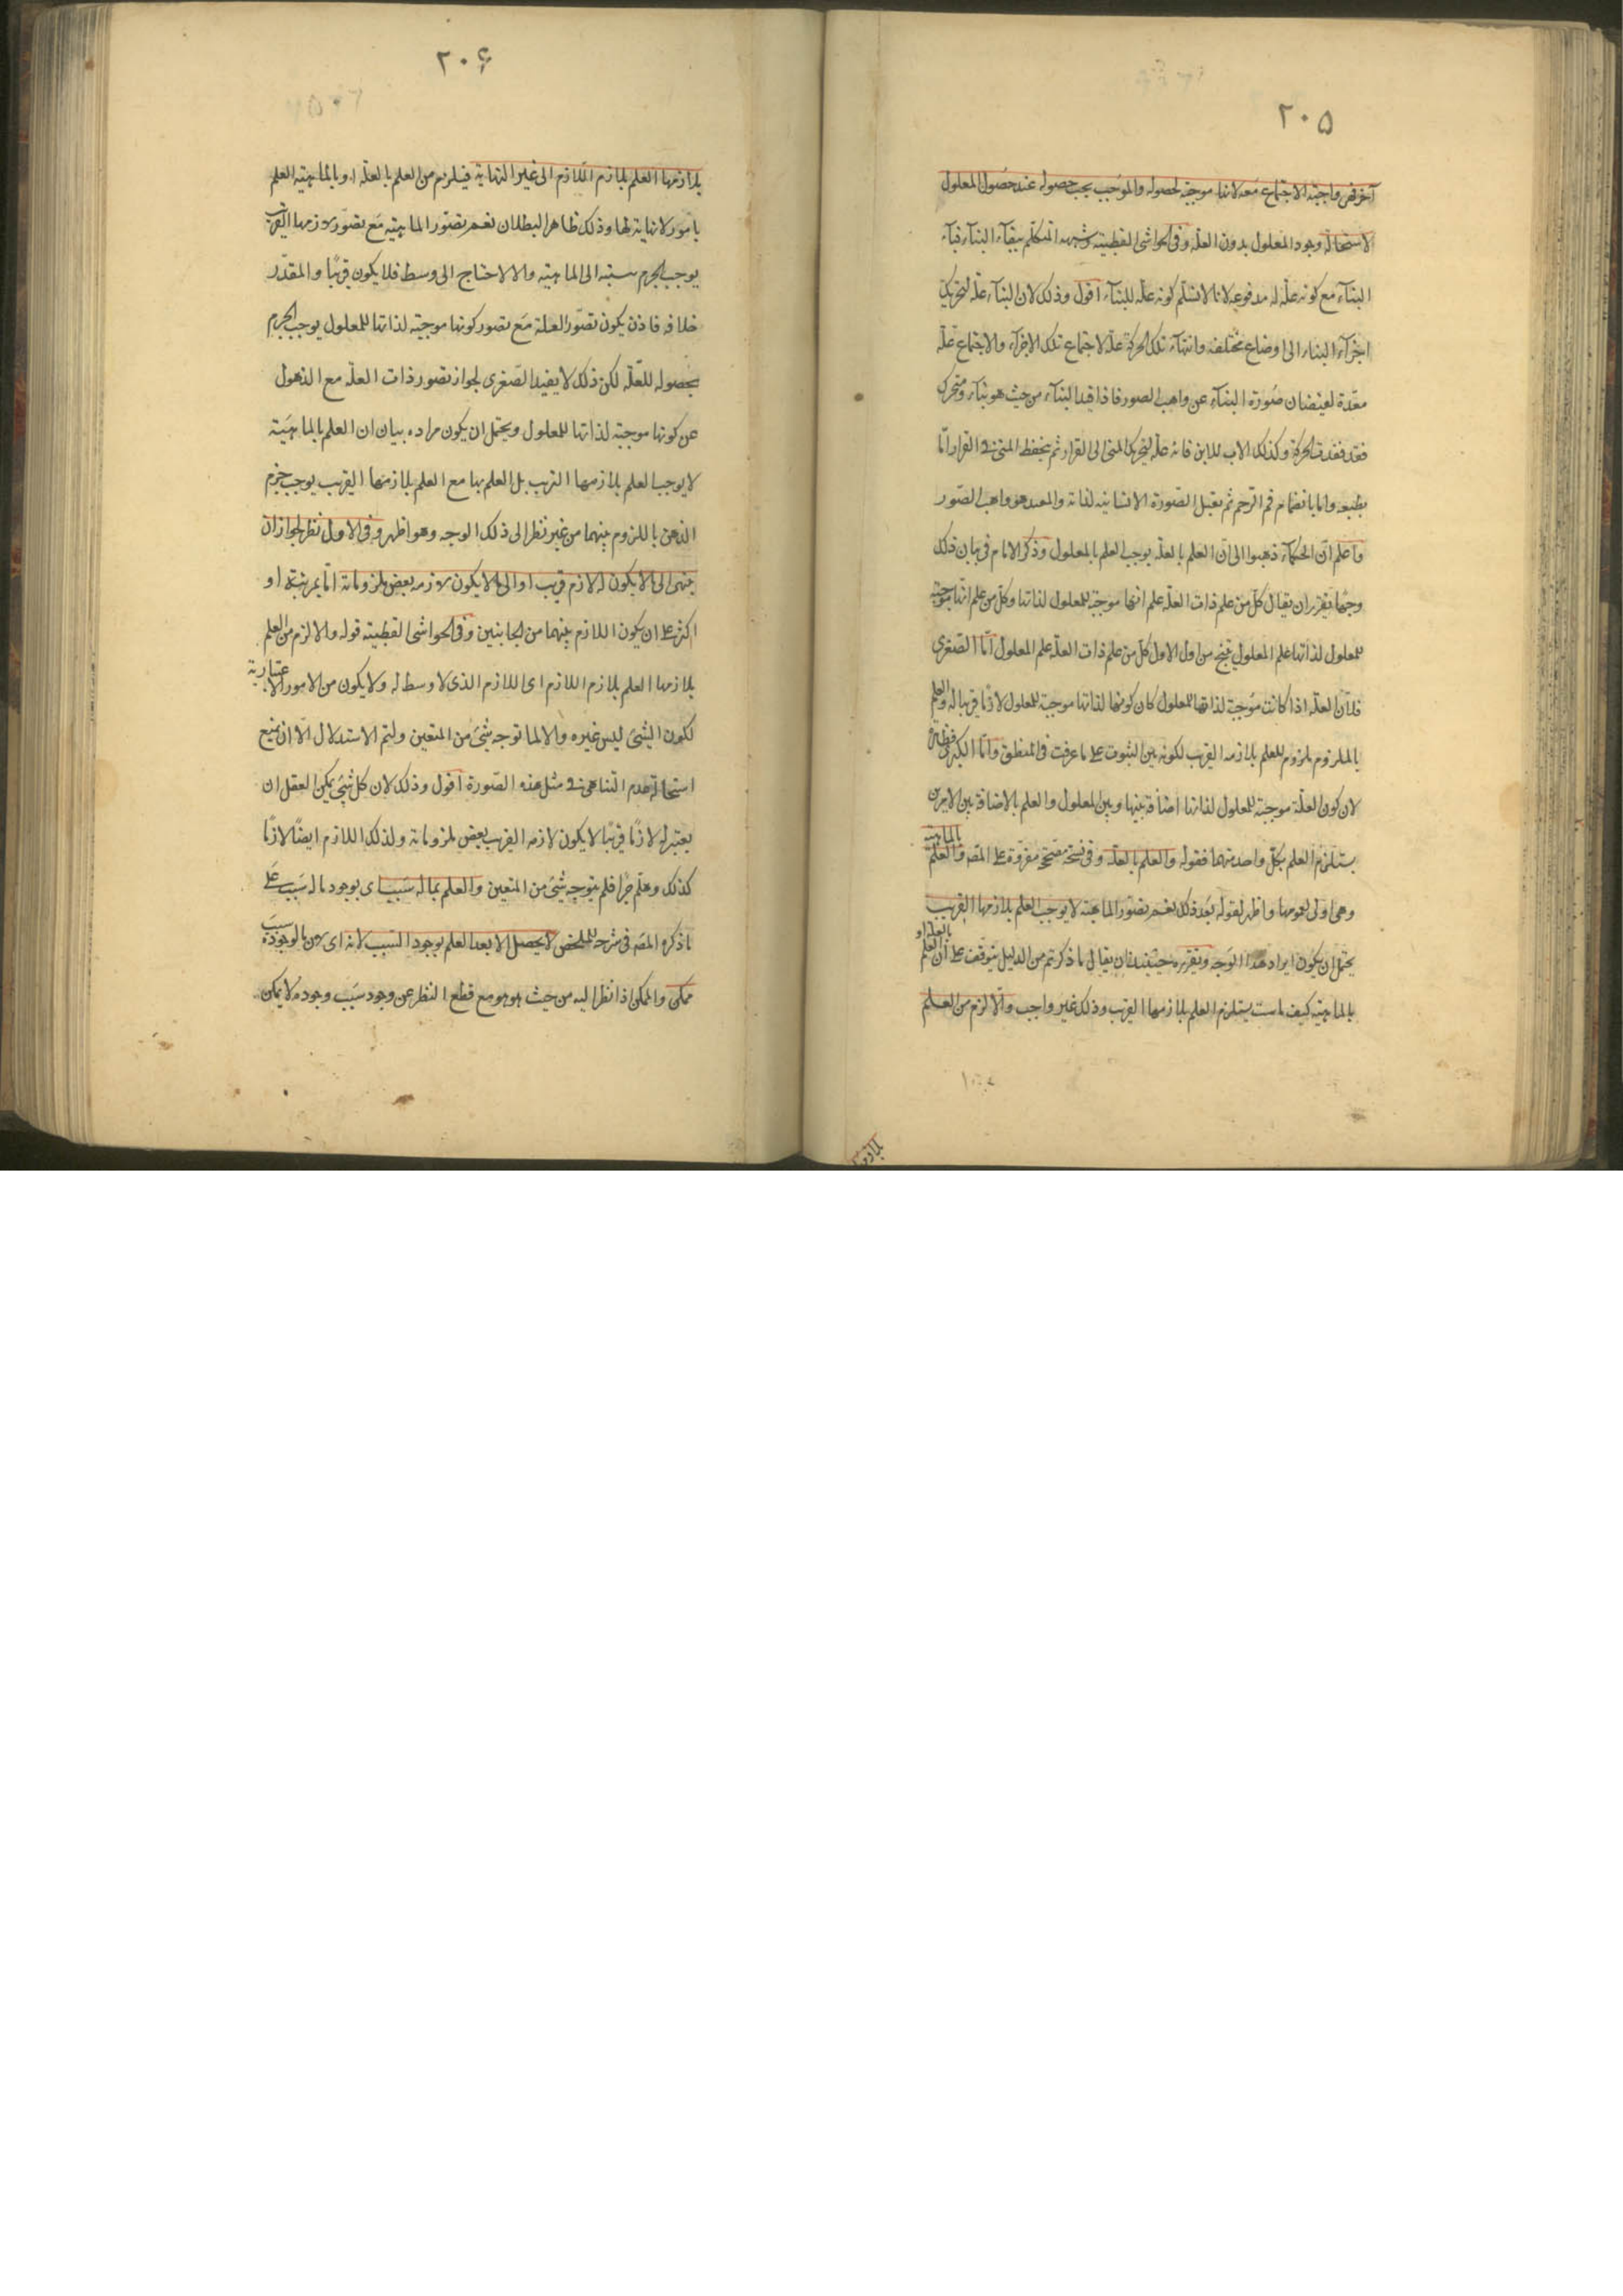 ٢٠۵
آخر فهى واجبة الاجتماع معه لانها موجبة لحصوله والموجب يجب حصوله عند حصول المعلول
لاستحالة وجود المعلول بدون العلّة وفى الحواشى القطبية وشبهه المتكلّم ببقاء البناء فناء
البنآء مع كونه علّة له مدفوعة لانا لا نسلّم كونه علّة للبنآء اقول وذلك لان البنآء علّة لتحريك
اجزآء البناء الى اوضاع مختلفة وانتهآء تلك الحركة علّة لاجتماع تلك الاجزآء والاجتماع علّة
معدّة لفيضان صورة البنآء عن واهب الصور فاذا فقد البنآء من حيث هو بنآء ومتحرك
فقد فقدت الحركة وكذلك الاب للابن فانه علّة لتحريك المنى الى القرار ثم يتحفظ المنى فى القرار امّا
بطبعه واما بانضمام فم الرحم ثم يقبل الصورة الانسانية لذاته والمعيد هو واهب الصّور
واعلم انّ الحكمآء ذهبوا الى انّ العلم بالعلّة يوجب العلم بالمعلول وذكر الامام فى بيان ذلك
وجها تقريره ان يقال كلّ من علم ذات العلّة علم انها موجبة للمعلول لذاتها وكلّ من علم انها موجبة
للمعلول لذاتها علم المعلول ينتج من اول الاول كلّ من علم ذات العلّة علم المعلول امّا الصّغرى
فلانّ العلّة اذا كانت موجبة لذاتها للمعلول كان كونها لذاتها موجبة للمعلول لازمًا قريبا له والعلم
بالملزوم ملزوم للعلم بلازمه القريب لكونه بين الثبوت على ما عرفت فى المنطق وامّا الكبرى فظاهرة
لان كون العلّة موجبة للمعلول لذاتها اضافة بينها وبين المعلول والعلم بالاضافة بين الامرين
يستلزم العلم بكلّ واحد منهما فقوله والعلم بالعلّة وفى نسخة مصحّحة مقروّة على المصَ والعلم بالماهية
وهى اولى لعمومها واظهر لقوله بعد ذلك نعم تصوّر الماهية لا يوجب العلم بلازمها القريب
يحتمل ان يكون ايراد هذا الوجه وتقريره حينئذ ان يقال ما ذكرتم من الدليل يتوقّف على ان العلم بالعلة او
بالماهية كيف ما كانت يستلزم العلم بلازمها القريب وذلك غير واجب والّا لزم من العلم
٢٠۶
بلازمها العلم بلازم اللازم الى غير النهاية فيلزم من العلم بالعلّة او بالماهية العلم
بامور لا نهاية لها وذلك ظاهر البطلان نعم تصوّر الماهية مع تصوّر لازمها القريب
يوجب الجزم بنسبته الى الماهية والا لاحتاج الى وسط فلا يكون قريبًا والمقدّر
خلافه فاذن يكون تصوّر العلة مع تصور كونها موجبة لذاتها للمعلول يوجب الجزم
بحصوله للعلّة لكن ذلك لا يفيد الصّغرى لجواز تصور ذات العلّة مع الذهول
عن كونها موجبة لذاتها للمعلول ويحتمل ان يكون مراده بيان ان العلم بالماهية
لا يوجب العلم بلازمها القريب بل العلم بها مع العلم بلازمها القريب يوجب جزم
الذهن باللزوم بينهما من غير نظر الى ذلك الوجه وهو اظهر وفى الاول نظر لجواز ان
ينتهى الى ما لا يكون له لازم قريب او الى ما لا يكون لازمه بعض ملزوماته امّا بمرتبة او
اكثر على ان يكون اللازم بينهما من الجانبين وفى الحواشى القطبية قوله والا لزم من العلم
بلازمها العلم بلازم اللازم اى اللازم الذى لا وسط له ولا يكون من الامور الاعتبارية
لكون الشئ ليس غيره والا لما توجه شئ من المنعين ولتم الاستدلال الّا ان نمنع
استحالة عدم التناهى فى مثل هذه الصّورة اقول وذلك لان كل شئ يمكن العقل ان
يعتبر له لازمًا قريبًا لا يكون لازمه القريب بعض ملزوماته ولذلك اللازم ايضًا لازمًا
كذلك وهلّم جرًّا فلم يتوجه شئ من المنعين والعلم بما له سَبب اى بوجود ما له سَبب على
ما ذكره المصَ فى شرحه للملخّص لا يحصل الا بعد العلم بوجود السّبب لانه اى لان ما لوجوده سبب
ممكن والممكن اذا نظر اليه من حيث هو هو مع قطع النظر عن وجود سَبب وجوده لا يمكن